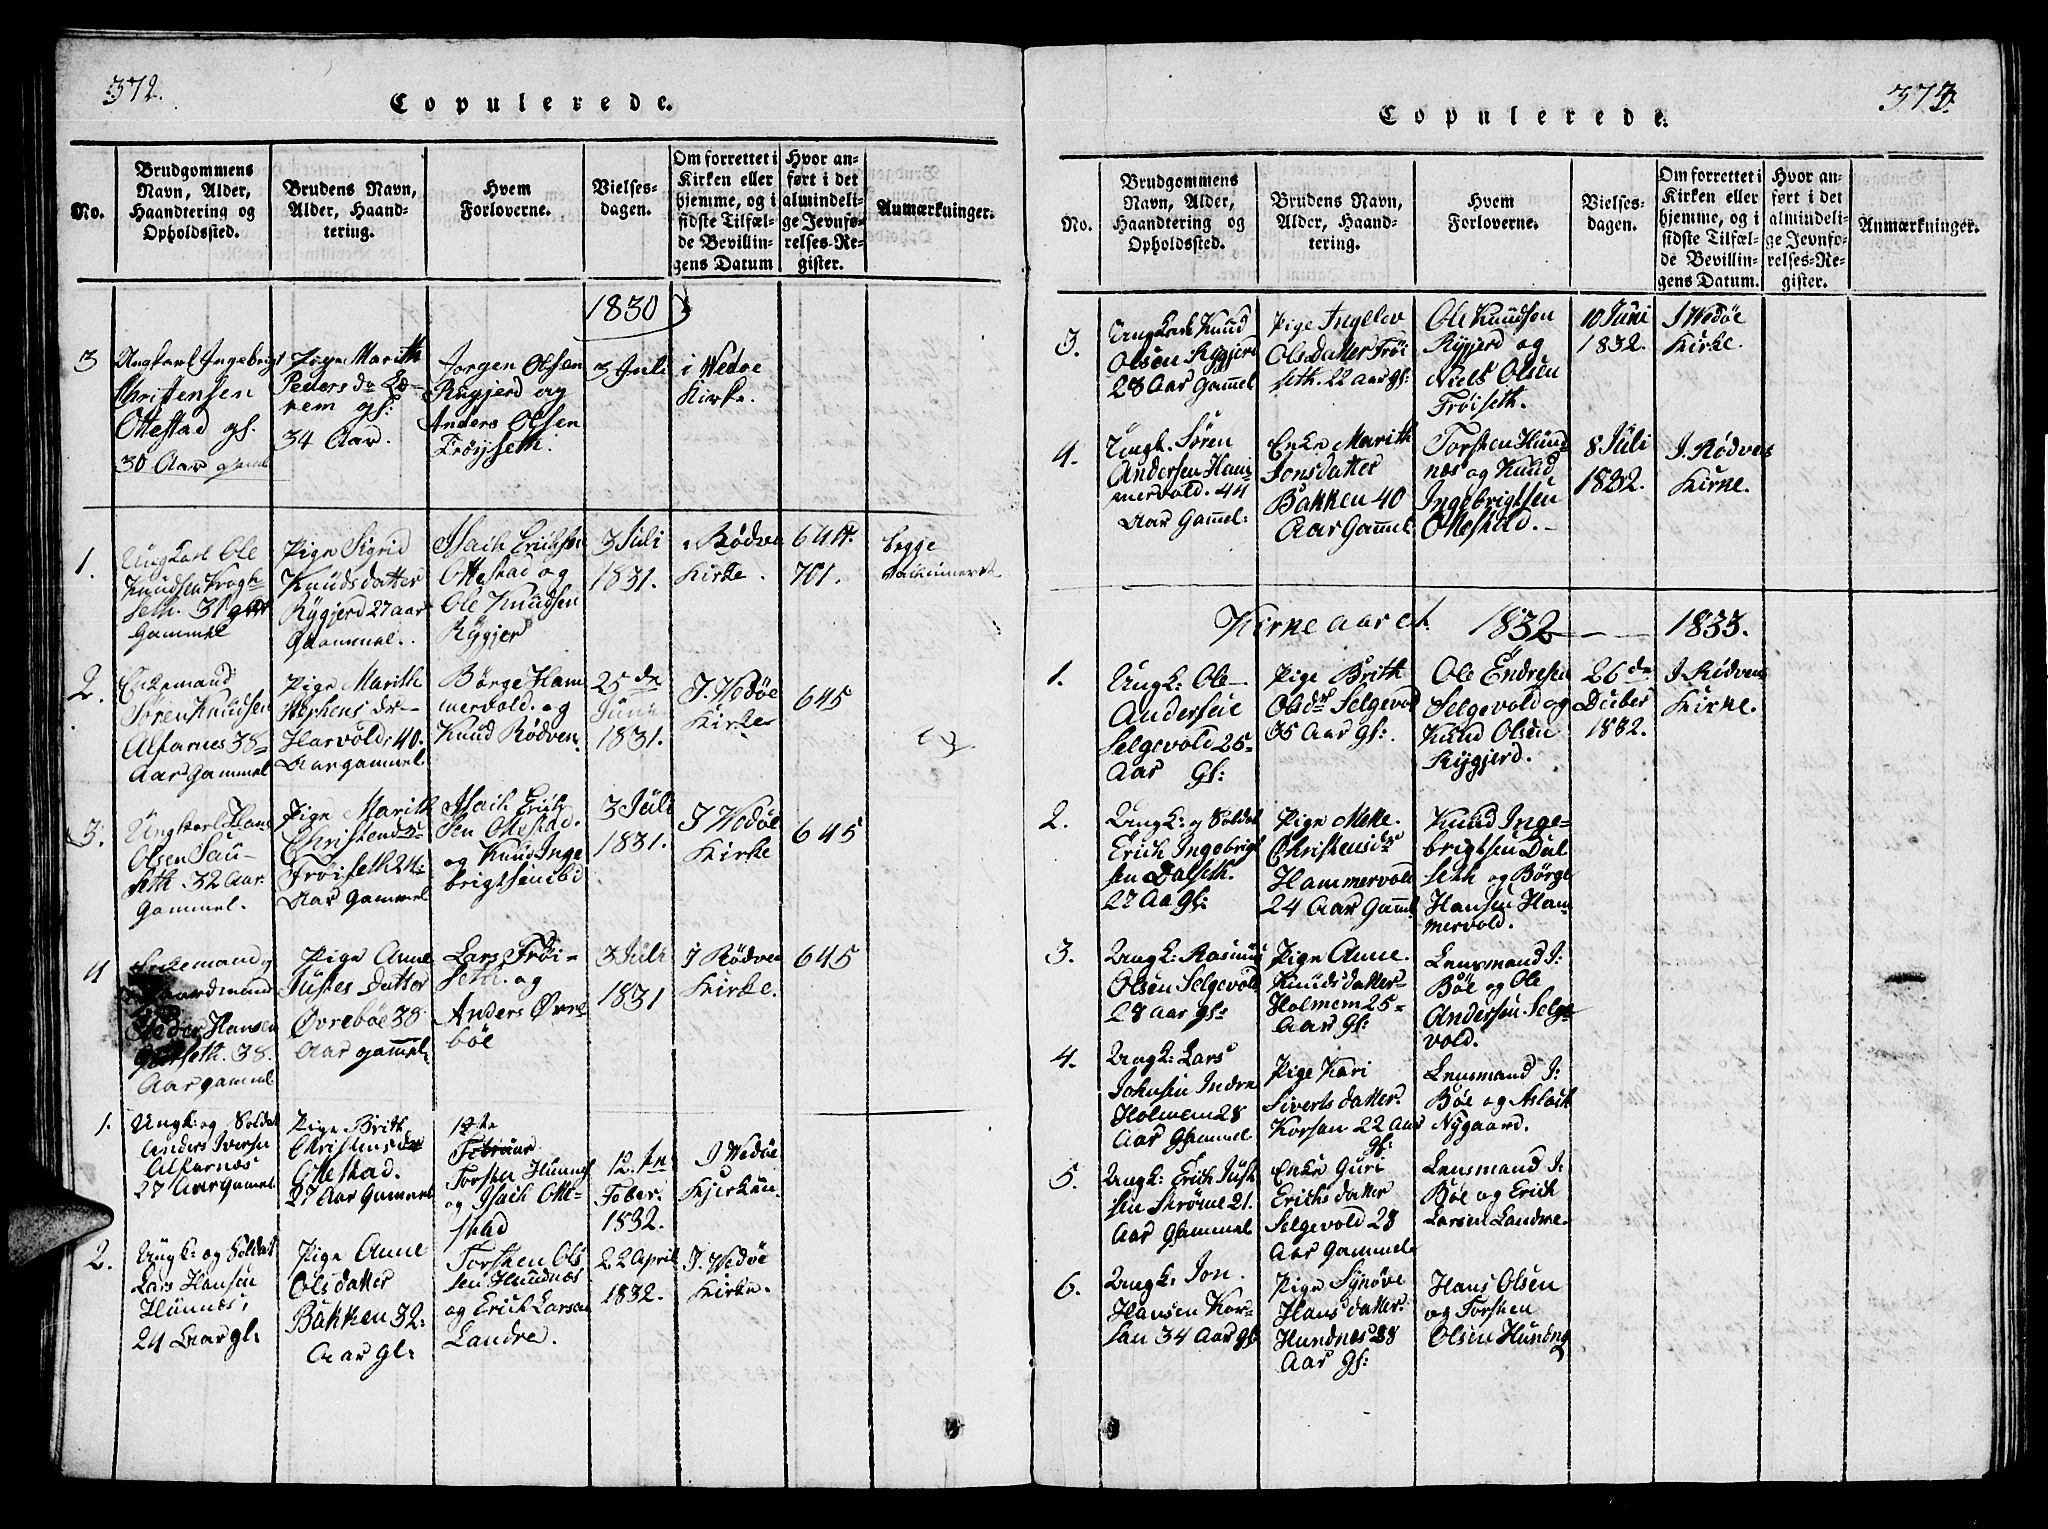 372.
Copulerede.
No.
Brudgommens
Navn, Alder,
Haandtering og
Opholdssted.
Brudens Navn,
Alder, Haand-
tering.
Hvem
Forloverne.
Vielses-
dagen.
Om forrettet i
Kirken eller
hjemme, og i
sidste Tilfæl-
de Bevillin-
gens Datum
Hvor an-
ført i det
almindeli-
ge Jevnfø-
relses-Re-
gister.
Anmærkninger.
1830
3
Ungkarl Ingebrigt
Christensen
Ottestad gl.
30 Aar gamel
Pige Marith
Peders da Læ-
rem gl:
34 Aar.
Jørgen Olsen
Rygjerd og
Anders Olsen
Frøyseth.
3 Juli
i Wedøe
Kirke.
1.
Ungkarl Ole
Knudsen
seth. 31
Gammel
Pige Sigrid
Knudsdatter
Rygjerd 27 aar
Gammel.
Isach Erichsen
Ottestad og
Ole Knudsen
Rygjer
3 Juli
1831.
i Rødven
Kirke.
644.
701.
begge
vaccineret
2.
Enkemand
Søren Knudsen
Alfarnes 38-
Aar Gammel
Pige Marith
Stephens dr-
Harvold 40.
Aar gammel
Børge Ham
mervold. og
Knud Rødven.
25 de
Juni
1831.
J. Wedøe
Kirke
645
3.
Ungkarl Hans
Olsen Sau-
seth. 32 Aar.
Gammel.
Pige Marith
Christensdr
Frøiseth 24:
Aar Gammel
Isach Erich
sen Ottestad.
og Knud Inge
brigtsen ibd
3 Juli
1831.
J Wedøe
Kirke
645
4
Enkemand og
Gaardmand
Peder Hansen
38.
Aar gamel
Pige Anne
Justes Datter
Øvrebøe 38
Aar gammel.
Lars Frøi-
seth. og
Anders Øvre
bøe
3 Juli
1831
J Rødven
Kirke.
645
1.
Ungk: og Soldat
Anders Iversen
Alfarnæs
27 Aar Gamel.
Pige Brith
Christensdr
Ottestad.
27 Aar Gammel
12te
Februar
Torsten Hunnes
og Isach Otte-
stad
12. te
Feber.
1832.
J Wedøe
Kjerken.
2.
Ungk: og Soldat
Lars Hansen
Hunnæs,
24 Aar gl:
Pige Anne
Olsdatter
Bakken 32:
Aar gl:
Torsten Ols
sen Hundnæs
og Erich Larsen
Landre.
22 April
1832.
J. Wedøe
Kirke.
373.
Copulerede.
No.
Brudgommens
Navn, Alder,
Haandtering og
Opholdssted.
Brudens Navn,
Alder, Haand-
tering.
Hvem
Forloverne.
Vielses-
dagen.
Om forrettet i
Kirken eller
hjemme, og i
sidste Tilfæl-
de Bevillin-
gens Datum.
Hvor an-
ført i det
almindeli-
ge Jevnfø-
relses-Re-
gister.
Anmærkninger.
3.
Ungkarl Knud
Olsen Rygjerd
28 Aar Gammel
Pige Ingelev
Olsdatter Frøi
seth. 22 aar gl:
Ole Knudsen
Rygjerd og
Niels Olsen
Frøiseth.
10 Juni
1832.
J Wedøe
Kirke.
4.
Ungk. Søren
Andersen Ham
mervold. 44
Aar Gamel:
Enke Marith
Jonsdatter
Bakken 40
Aar Gammel
Torsten Hund
næs og Knud
Ingebrigtsen
Ottestad.-
8 Juli
1832.
J. Rødven
Kirke.
Kirkeaaret. 1832 - - 1833.
1.
Ungk: Ole
Andersen
Selgevold 25-
Aar Gl:
Pige Brith
Olsdr Selgevold
35 Aar Gl:
Ole Endresen
Selgevold og
Knud Olsen
Rygjerd.
26 de
Decber
1832.
J. Rødven
Kirke.
2.
Ungk: og Soldat
Erich Ingebrigt
sen Dalseth.
27 Aa Gl:
Pige Mette
Christensdr
Hammervold
24 Aar Gamel
Knud Inge-
brigtsen Dal
seth og Børge
Hansen Ham-
mervold.
3.
Ungk: Rasmus
Olsen Selgevold
28 aar gl:
Pige Anne
Knudsdatter
Holmem 25-
Aar Gl:
Lensmand J:
Bøe og Ole
Andersen Selge
vold.
4.
Ungk: Lars
Johnsen Indre
Holmem 28
Aar Gammel
Pige Kari
Sivertsdatter.
Korsan 22 Aar
gl:
Lensmand J:
Bøe og Aslach
Nygaard.
5.
Ungk: Erich Just
sen Strøme 21.
Aar Gammel
Enke Guri
Erichsdatter
Selgevold 28
Aar Gammel.
Lensmand J:
Bøe og Erich
Larsen Landre.
6.
Ungk: Jon
Hansen Kor-
san 34 Aar gl
Pige Synøve
Hansdatter.
Hundnæs 28
Aar Gl:
Hans Olsen
og Torsten
Olsen Hundnæ